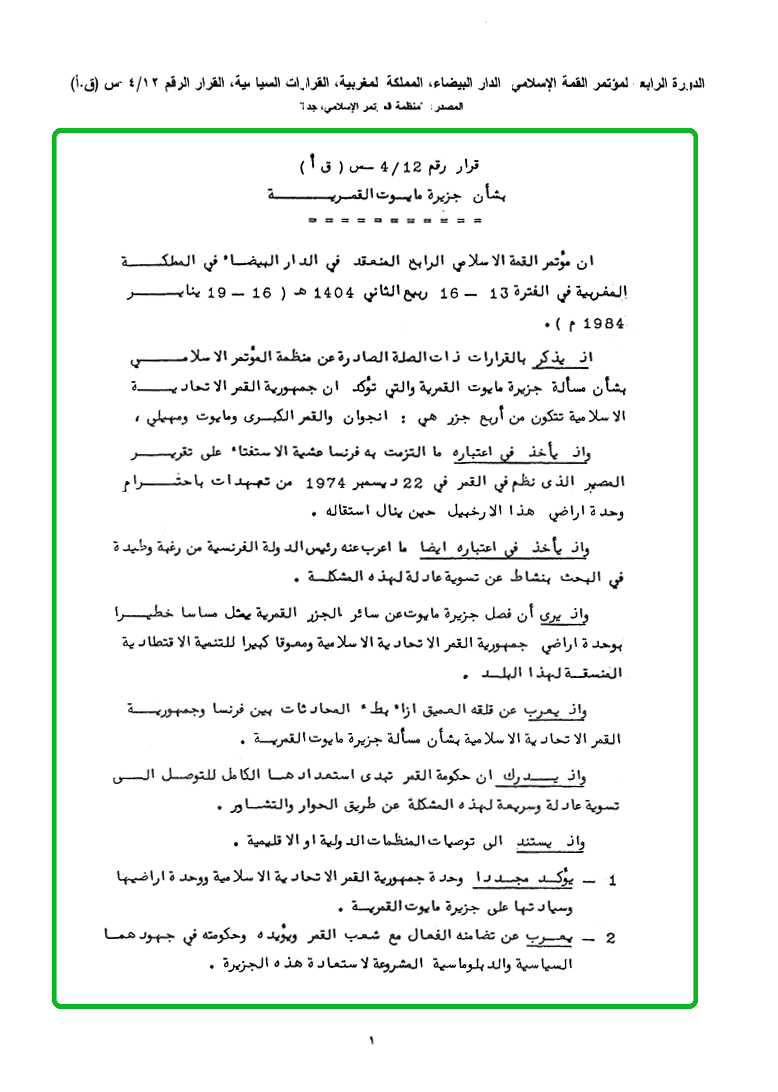 الدورة الرابع لمؤتمر القمة الإسلامي الدار البيضاء، المملكة لمغربية، القرارات السياسية، القرار الرقم ٤/١٢ -س (ق.أ)
المصدر: منظمة المؤتمر الإسلامي، جدة
قرار رقم 4/12 – س ( ق أ )
بشأن جزيرة مايوت القمرية
= = = = = = = = = = =
ان مؤتمر القمة الاسلامي الرابع المنعقد في الدار البيضاء في المملكة
المغربية في الفترة 13 – 16 ربيع الثاني 1404 هـ ( 16 – 19 يناير
1984 م ).
اذ يذكر بالقرارات ذات الصلة الصادرة عن منظمة المؤتمر الاسلامي
بشأن مسألة جزيرة مايوت القمرية والتي تؤكد ان جمهورية القمر الاتحادية
الاسلامية تتكون من أربع جزر هي : انجوان والقمر الكبرى ومايوت ومهيلي ،
واذ يأخذ في اعتباره ما التزمت به فرنسا عشية الاستفتاء على تقرير
المصير الذى نظم في القمر في 22 ديسمبر 1974 من تعهدات باحترام
وحدة اراضي هذا الارخبيل حين ينال استقاله .
واذ يأخذ في اعتباره ايضا ما اعرب عنه رئيس الدولة الفرنسية من رغبة وطيدة
في البحث بنشاط عن تسوية عادلة لهذه المشكلة .
واذ يرى أن فصل جزيرة مايوت عن سائر الجزر القمرية يمثل مساسا خطيرا
بوحدة اراضي جمهورية القمر الاتحادية الاسلامية ومعوقا كبيرا للتنمية الاقتطادية
المنسقة لهذا البلد .
واذ يعرب عن قلقه العميق ازاء بطء المحادثات بين فرنسا وجمهورية
القمر الاتحادية الاسلامية بشأن مسألة جزيرة مايوت القمرية .
واذ يدرك ان حكومة القمر تبدى استعدادها الكامل للتوصل الى
تسوية عادلة وسريعة لهذه المشكلة عن طريق الحوار والتشاور .
واذ يستند الى توصيات المنظمات الدولية او الاقليمية .
1 – يؤكد مجددا وحدة جمهورية القمر الاتحادية الاسلامية ووحدة اراضيها
وسيادتها على جزيرة مايوت القمرية .
2 – يعرب عن تضامنه الفعال مع شعب القمر ويؤيده وحكومته في جهودهما
السياسية والدبلوماسية المشروعة لاستعادة هذه الجزيرة .
١